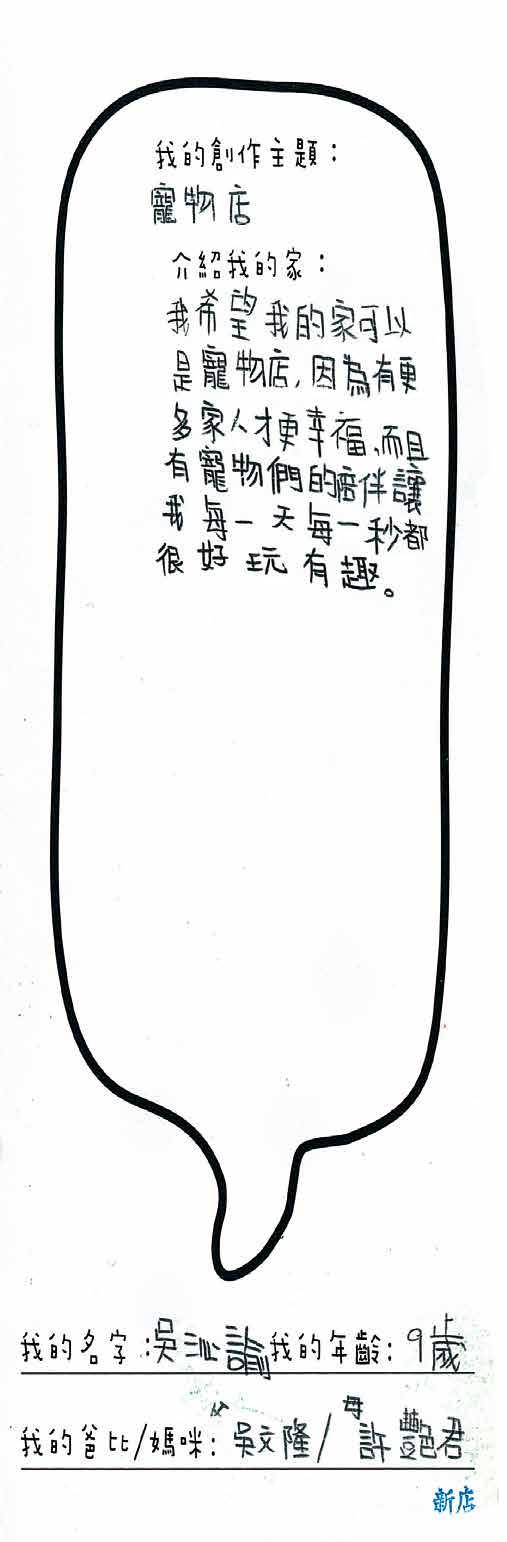 我的創作主題：
寵物店
介紹我的家：
我希望我的家可以
是寵物店,因為有更
多家人才更幸福,而且
有寵物們的陪伴讓
我每一天每一秒都
很好玩有趣。
我的名字：吳沁諭我的年齡：9歲
我的爸比/媽咪：父吳文隆/母許艷君
新店